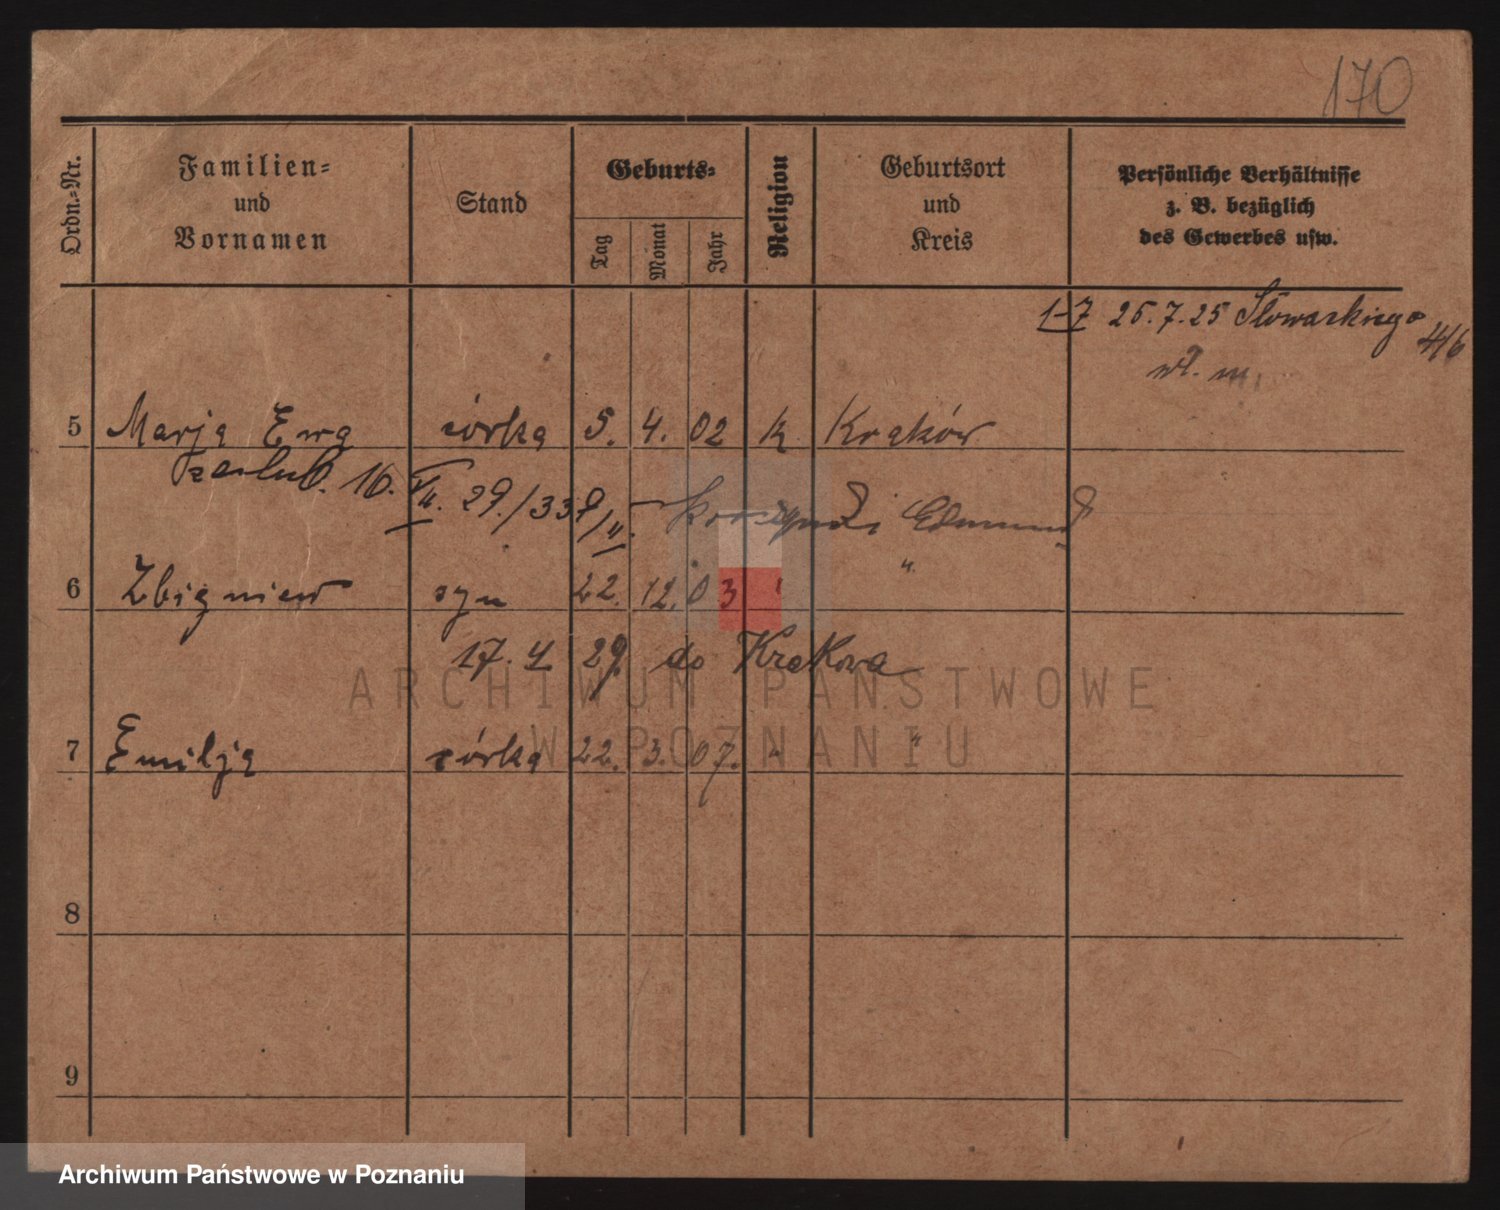 170
Ordn.-Nr.
Familien-
und
Vornamen
Stand
Geburts-
Tag
Monat
Jahr
Religion
Geburtsort
und
Kreis
Persönliche Verhältnisse
z. B. bezüglich
des Gewerbes usw.
1-7 25.7.25 Słowackiego 4/6
wł. m.
5 Marja Ewa córka 5. 4. 02 k Kraków
zaślub. 16. VII. 29./33 8/II. Edmund
6 Zbigniew syn 22. 12. 03 " "
17. 4 29. do Krakowa
7 Emilja córka 22. 3. 07. " "
8
9
ARCHIWUM PAŃSTWOWE
W POZNANIU
Archiwum Państwowe w Poznaniu